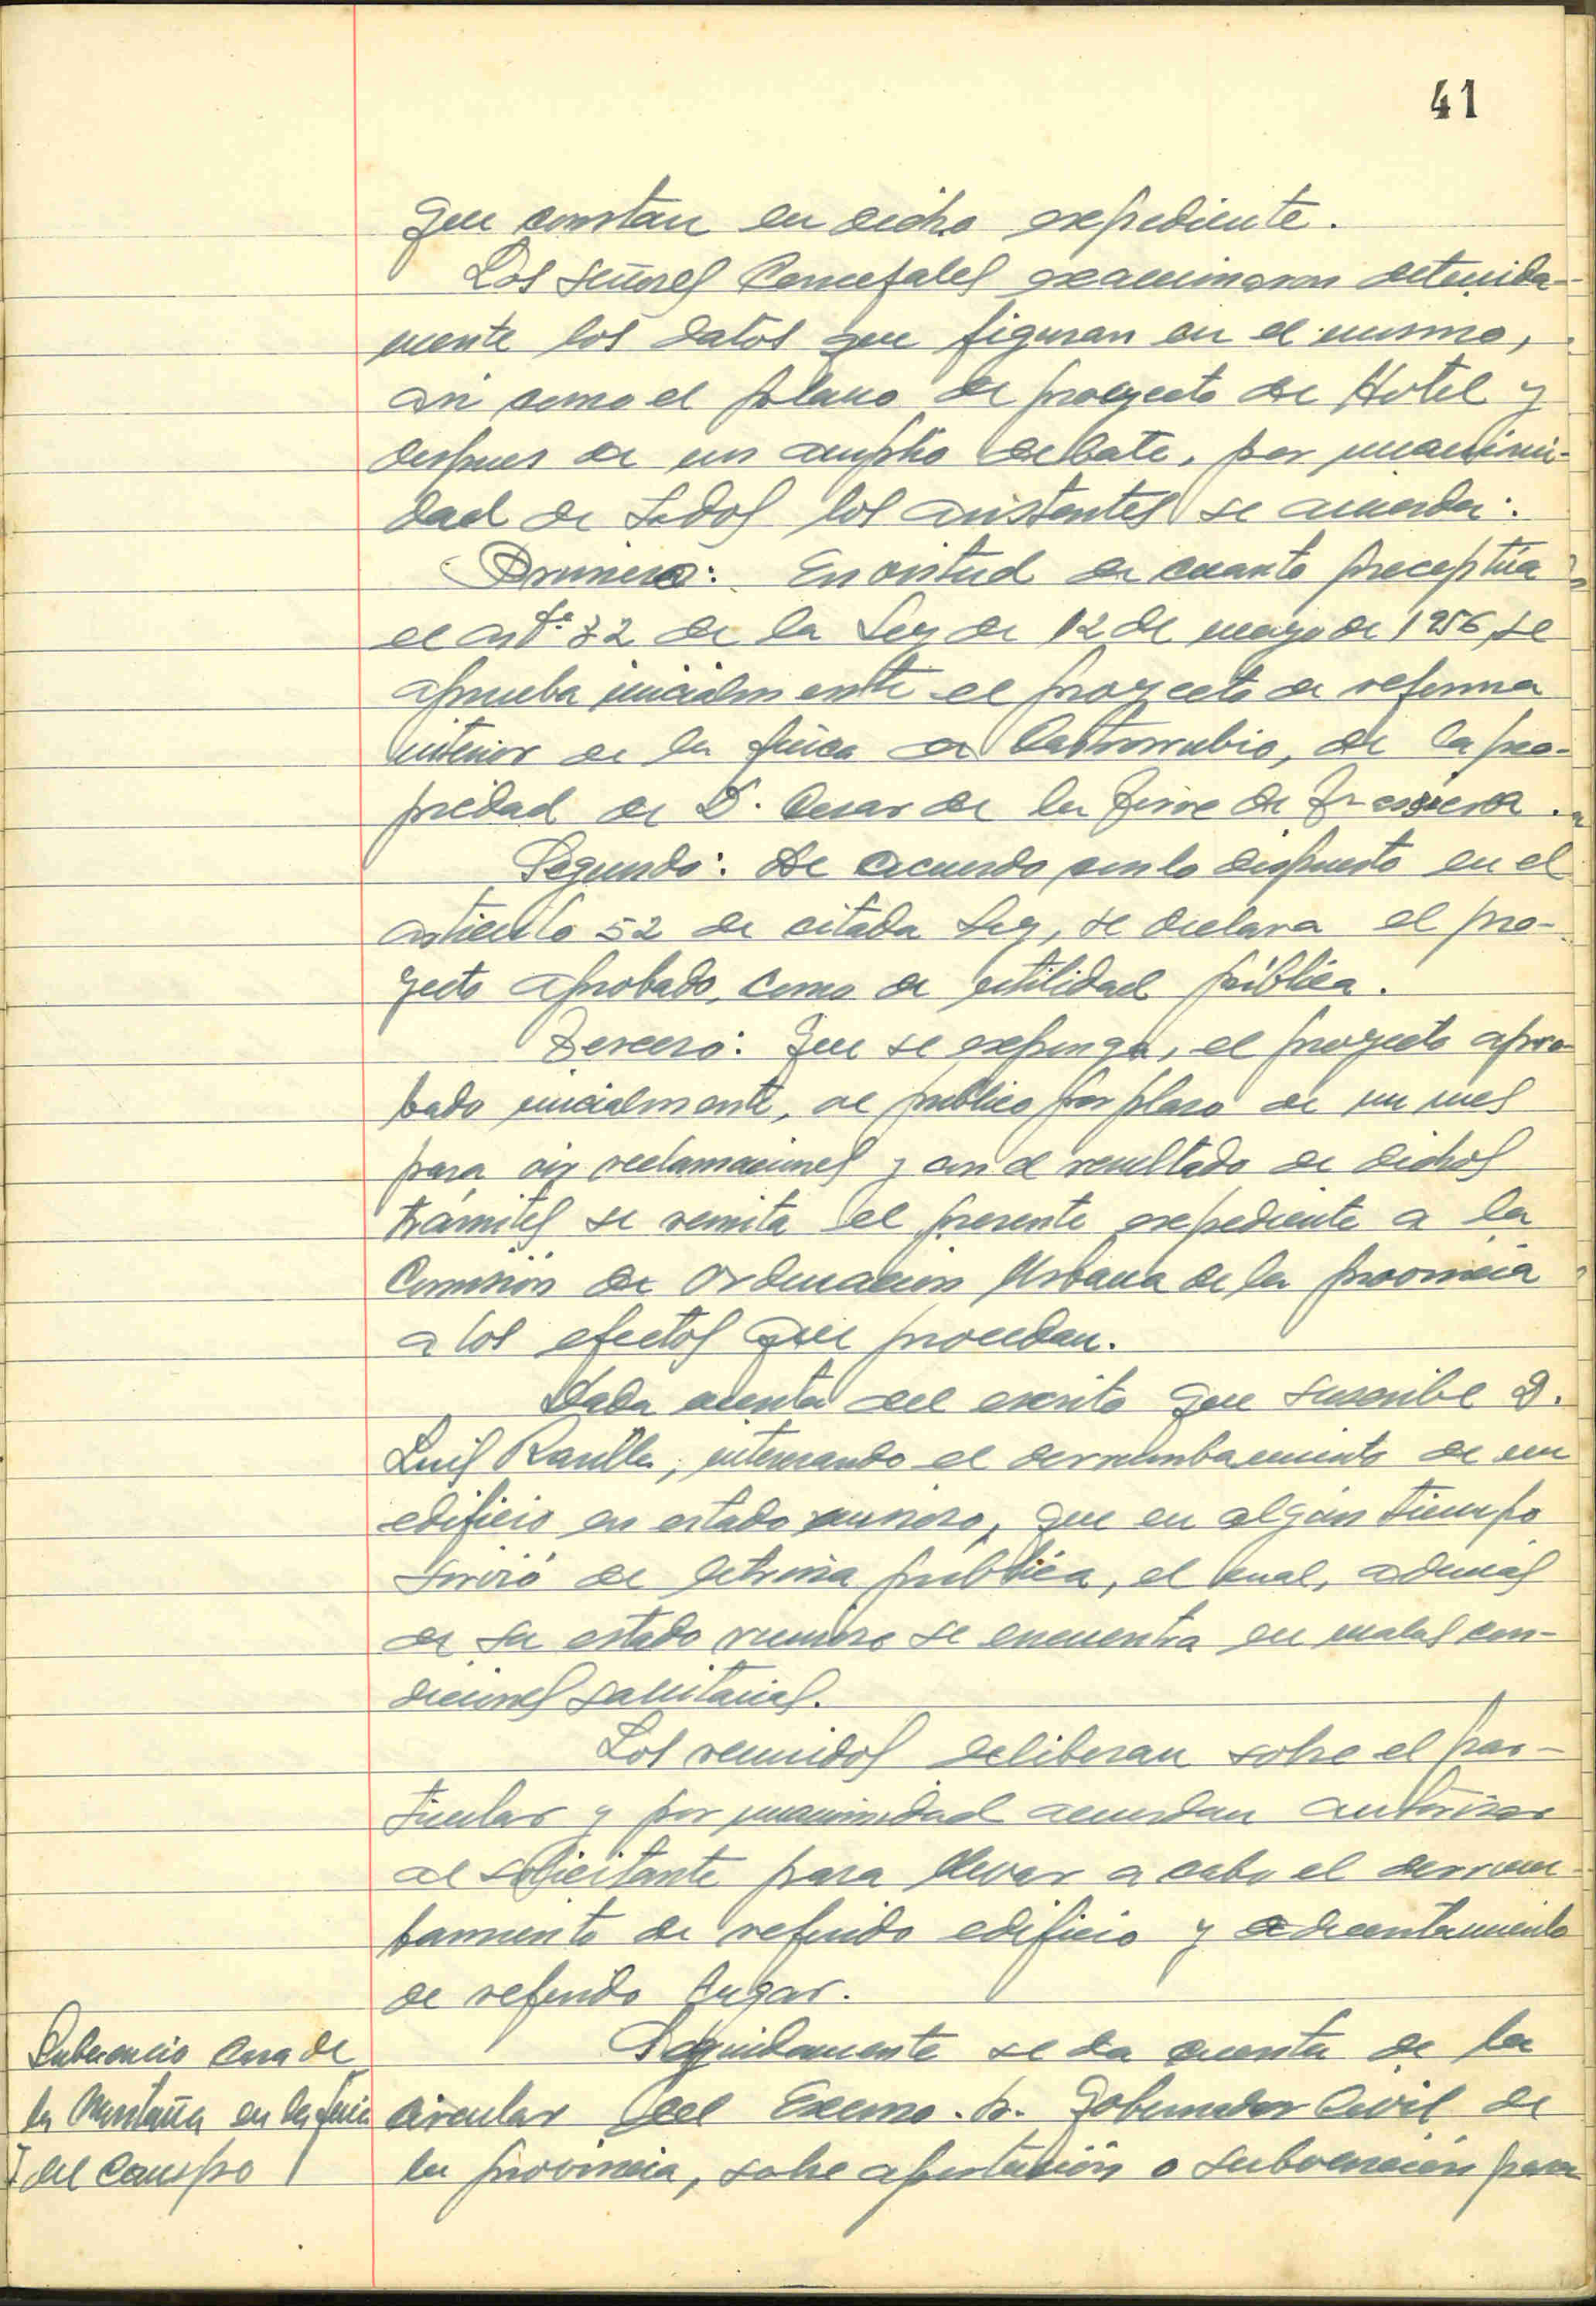 41
que constan en dicho expediente.
Los señores Concejales examinaron detenida-
mente los datos que figuran en el mismo,
asi como el plano de proyecto de Hotel y
despues de un amplio debate, por unanimi-
dad de todos los asistentes se acuerda:
Primero: En virtud de cuanto preceptúa
el artº 32 de la Ley de 12 de mayo de 1956, se
aprueba inicialmente el proyecto de reforma
interior de la finca de Castrorrubio, de la pro-
piedad de D. Cesar de la Torre de
Segundo: De acuerdo con lo dispuesto en el
articulo 52 de citada Ley, se declara el pro-
yecto aprobado, como de utilidad pública.
Tercero: Que se exponga, el proyecto apro-
bado inicialmente, al publico por plazo de un mes
para oir reclamaciones y con el resultado de dichos
trámites se remita el presente expediente a la
Comisión de Ordenación Urbana de la provincia
a los efectos que procedan.
Dada cuenta del escrito que suscribe D.
Luis interesando el derrumbamiento de un
edificio en estado ruinoso, que en algún tiempo
sirvió de letrina pública, el cual, además
de su estado ruinoso se encuentra en malas con-
diciones sanitarias.
Los reunidos deliberan sobre el par-
ticular y por unanimidad acuerdan autorizar
al solicitante para llevar a cabo el derrum-
bamiento de referido edificio y adecentamiento
de referido lugar.
Subvencio Casa de
la Montaña en la feria
del Campo
Seguidamente se da cuenta de la
circular del Excmo. Sr. Gobernador Civil de
la provincia, sobre aportación o subvención para